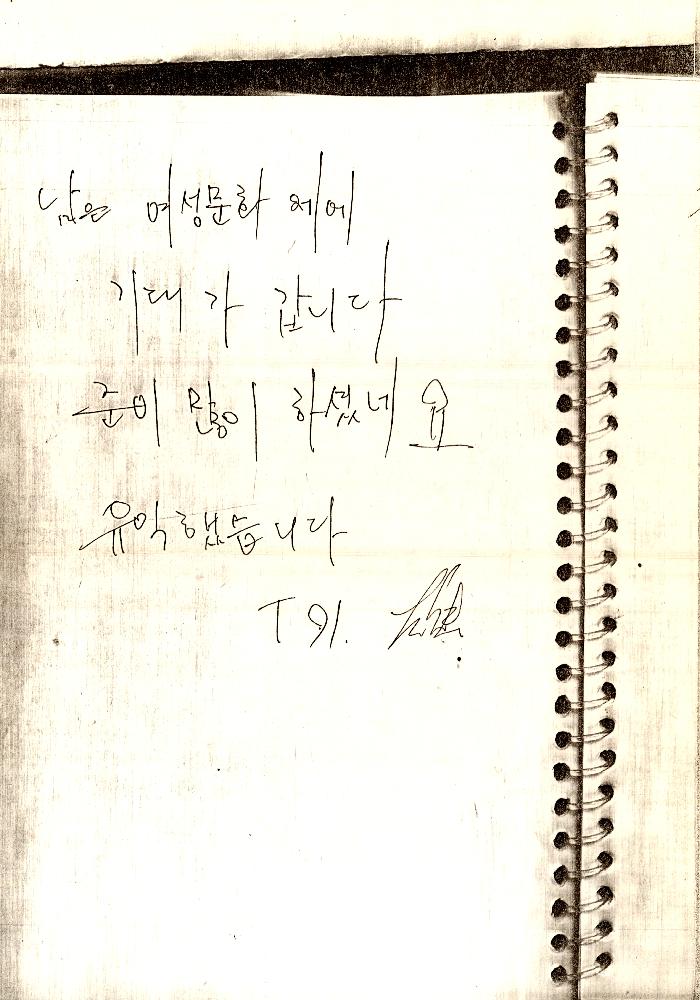 남은 여성문화 제에
기대가 갑니다
준이 많이 하셨네요
유익했습니다
T 91.